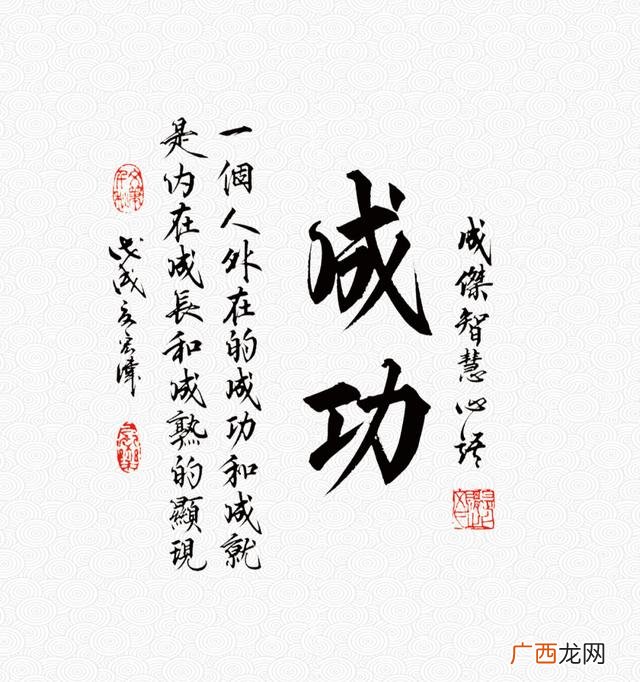 成傑智慧心語
成功
一個人外在的成功和成就
是内在成長和成熟的顯現
戊戌
广西龙网